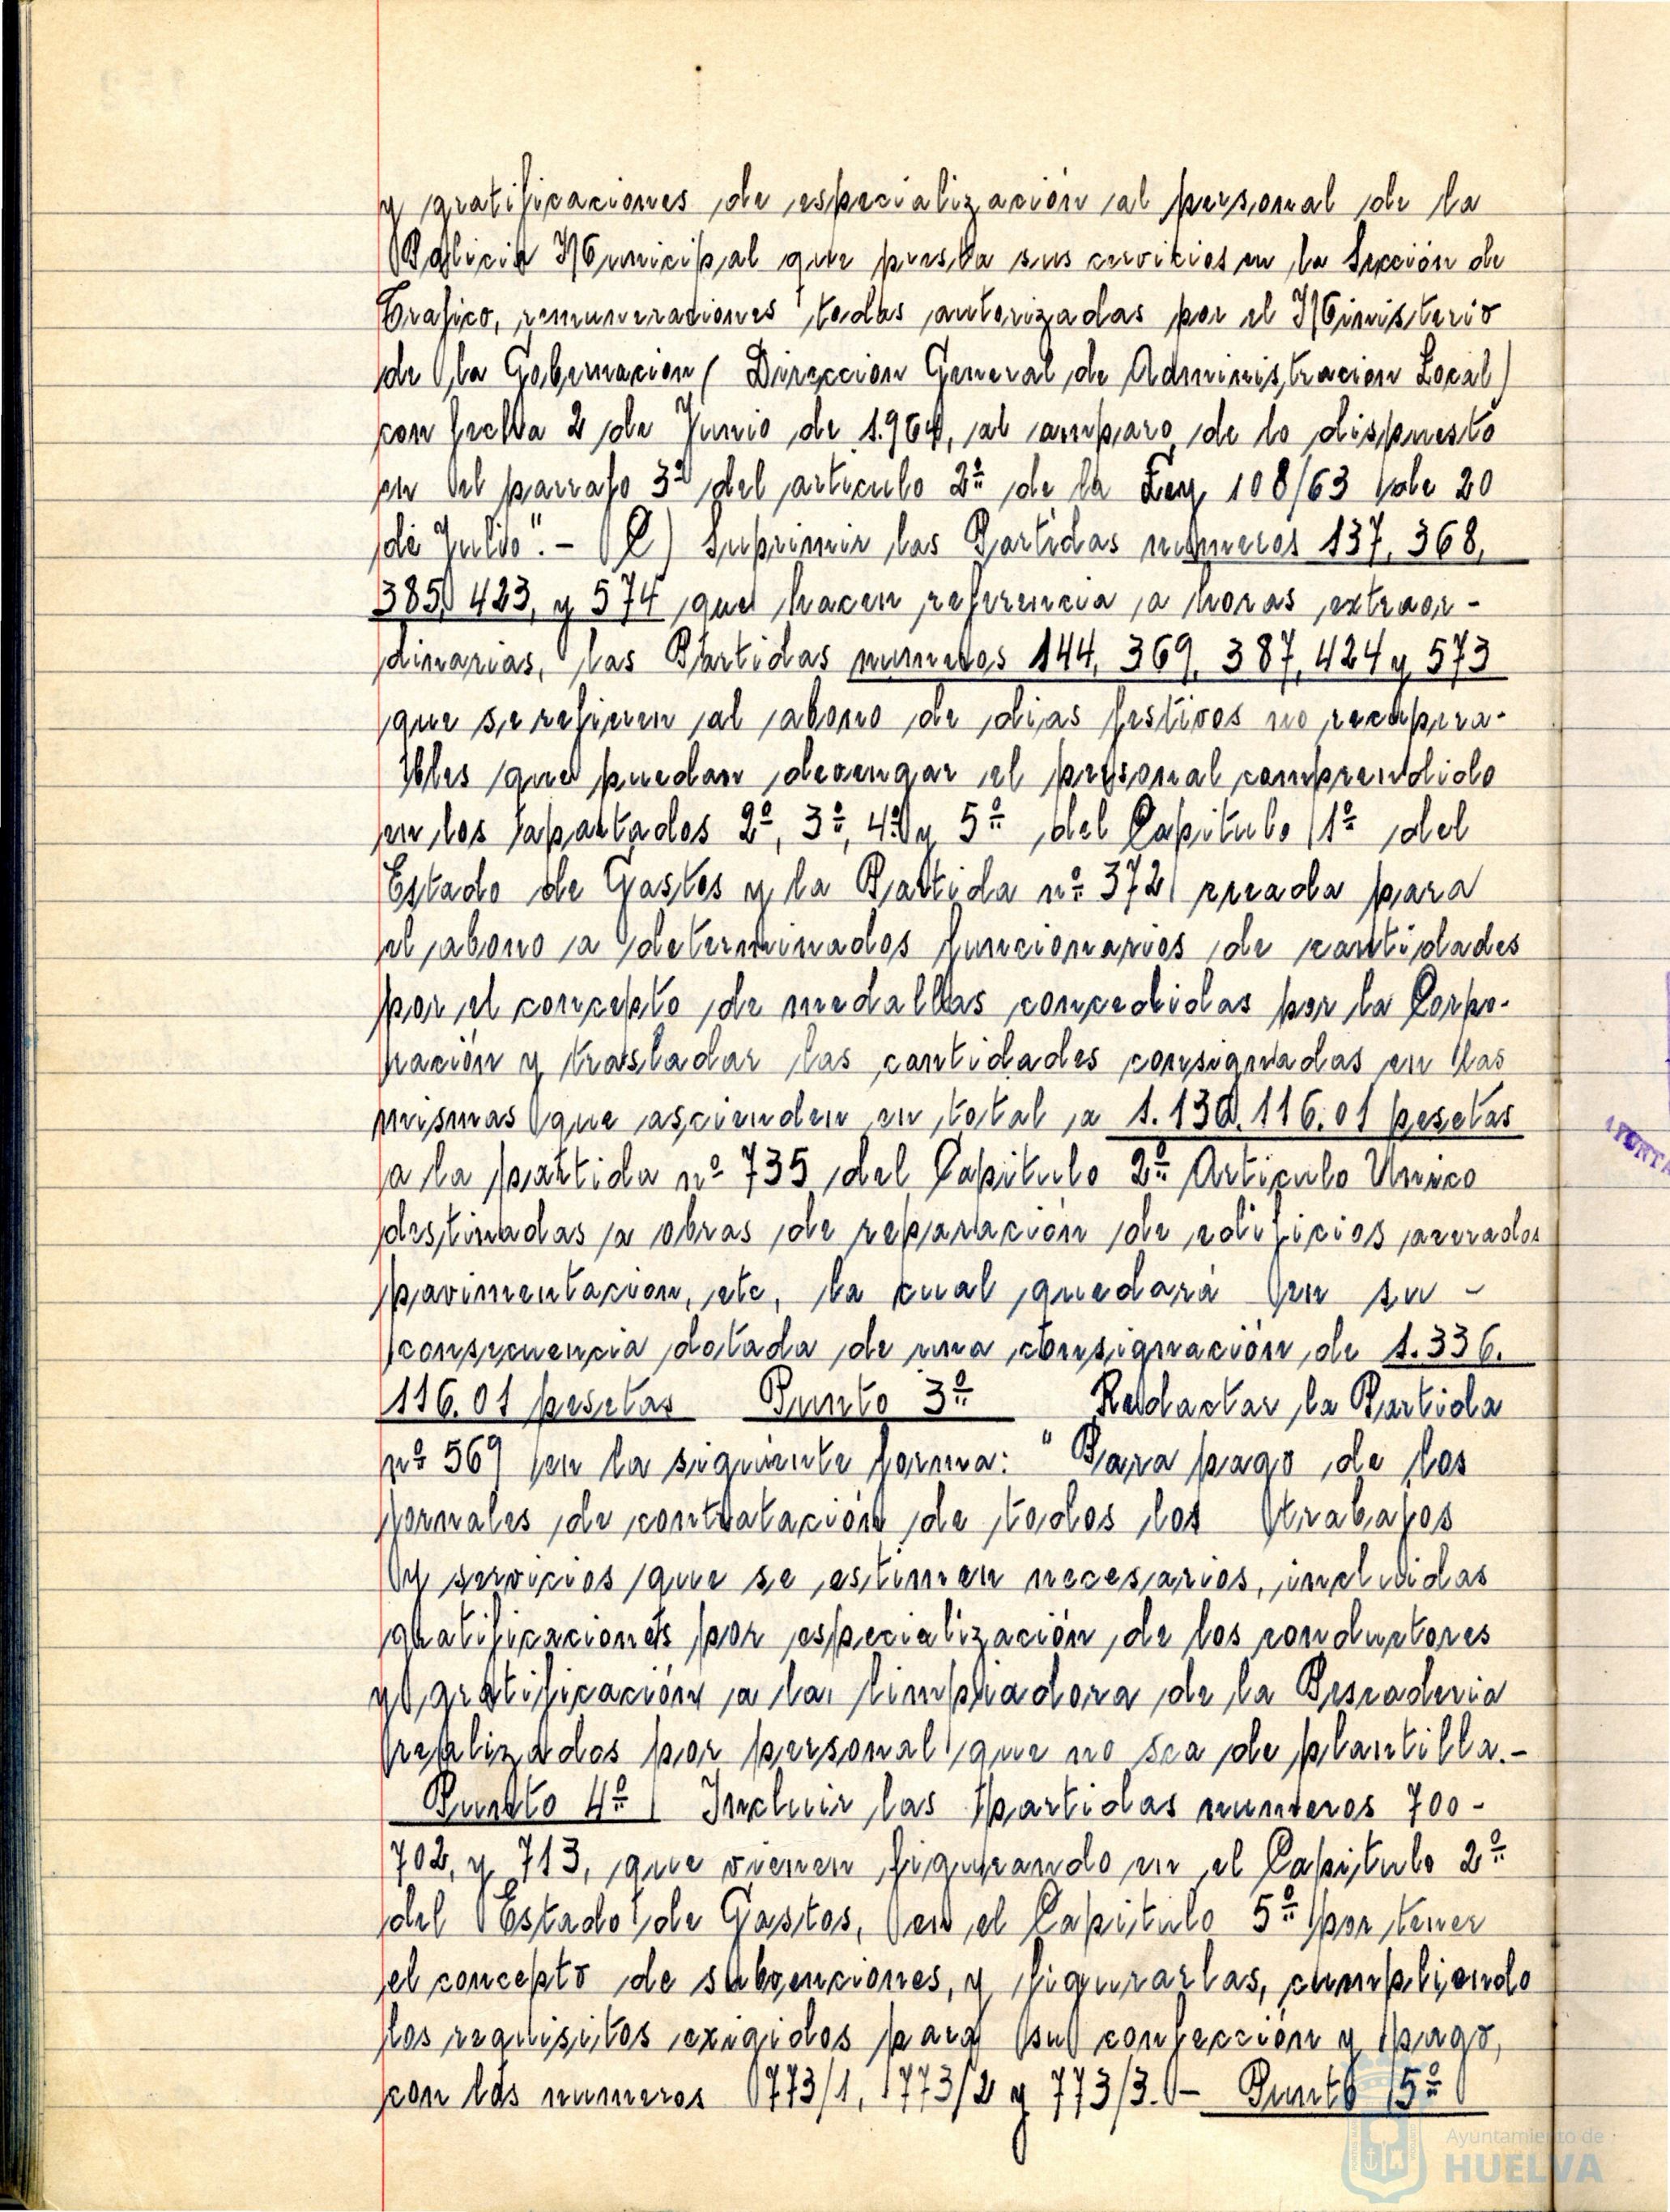 y gratificaciones de especialización al personal de la
Policia Municipal que presta sus servicios en la Sección de
Trafico, remuneraciones todas autorizadas por el Ministerio
de la Gobernacion (Direccion General de Administracion Local)
con fecha 2 de Junio de 1.964, al amparo de lo dispuesto
en el parrafo 3º del articulo 2º de la Ley 108/63 de 20
de Julio".- C) Suprimir las Partidas numeros 137, 368,
385, 423, y 574 que hacen referencia a horas extraor-
dinarias, las Partidas numeros 144, 369, 387, 424 y 573
que se refieren al abono de dias festivos no recupera-
bles que puedan devengar el personal comprendido
en los apartados 2º, 3º, 4º y 5º del Capitulo 1º del
Estado de Gastos y la Partida nº 372 creada para
el abono a determinados funcionarios de cantidades
por el concepto de medallas concedidas por la Corpo-
ración y trasladar las cantidades consignadas en las
mismas que ascienden en total a 1.130.116.01 pesetas
a la partida nº 735 del Capitulo 2º Articulo Unico
destinadas a obras de reparación de edificios acerados
pavimentacion, etc, la cual quedará en su -
consecuencia dotada de una consignación de 1.336.
116.01 pesetas Punto 3º Redactar la Partida
nº 569 en la siguiente forma: "Para pago de los
jornales de contratación de todos los trabajos
y servicios que se estimen necesarios, incluidas
gratificaciones por especialización de los conductores
y gratificación a la limpiadora de la Pescaderia
realizados por personal que no sea de plantilla.-
Punto 4º Incluir las partidas numeros 700-
702, y 713, que vienen figurando en el Capitulo 2º
del Estado de Gastos, en el Capitulo 5º por tener
el concepto de subvenciones, y figurarlas, cumpliendo
los requisitos exigidos para su confección y pago,
con los numeros 773/1, 773/2 y 773/3.- Punto 5º
AYUNTA
Ayuntamiento de
HUELVA